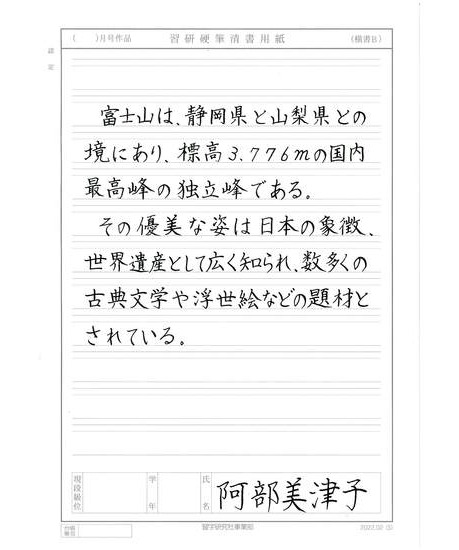 (　　)月号作品　習研硬筆清書用紙　(横書B)
富士山は、静岡県と山梨県との
境にあり、標高3.776mの国内
最高峰の独立峰である。
その優美な姿は日本の象徴、
世界遺産として広く知られ、数多くの
古典文学や浮世絵などの題材と
されている。
現段級位　学年　氏名　阿部美津子
習字研究社事業部　2022.02